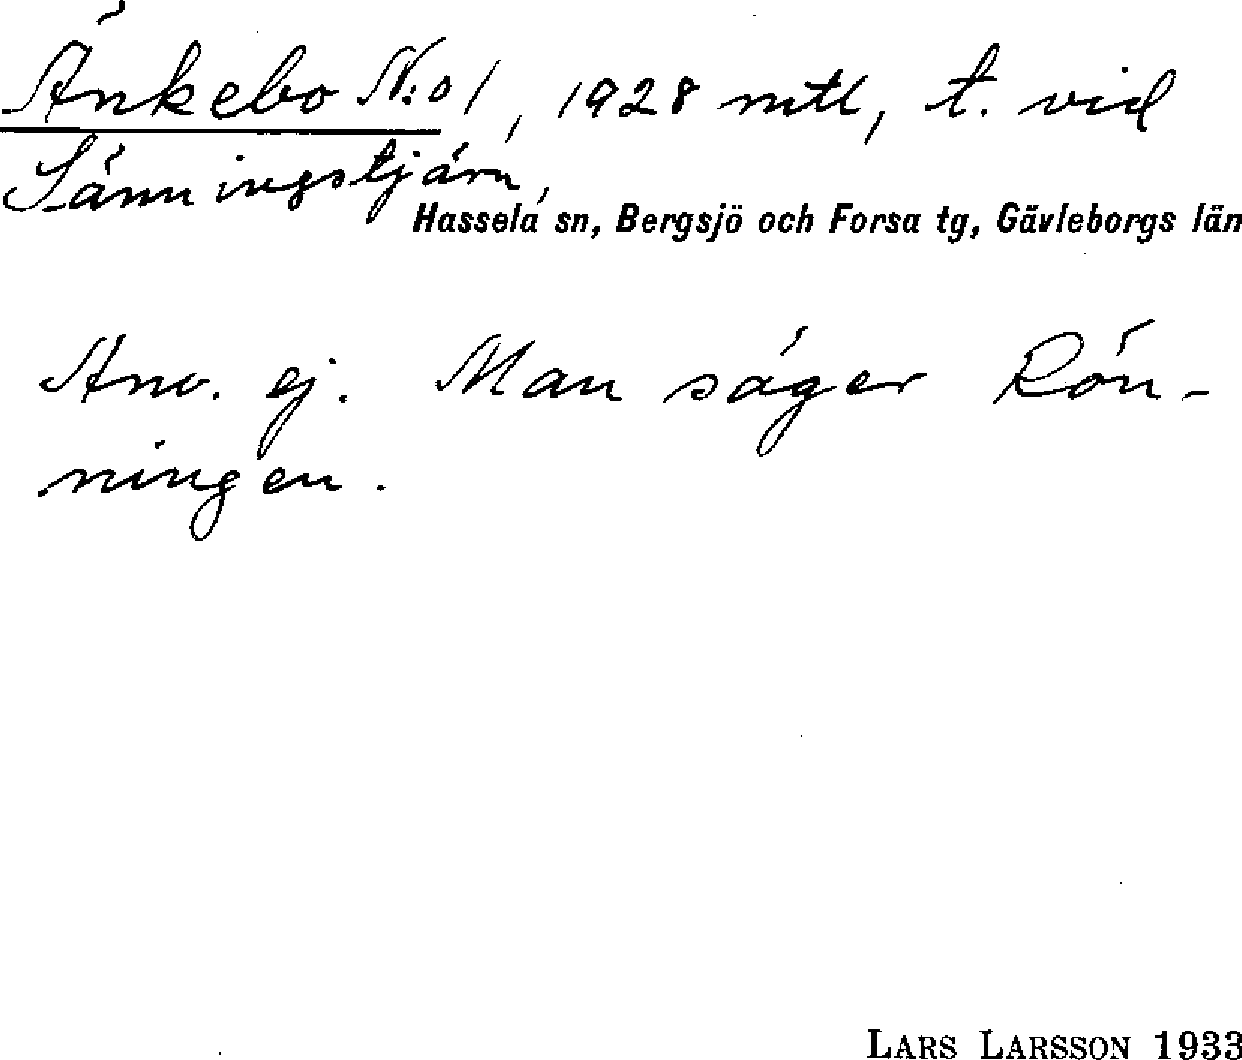 Änkebo N:o 1, 1928 mtl, t. vid
Sänningstjärn,
Hassela sn, Bergsjö och Forsa tg, Gävleborgs län
Anv. ej. Man säger Rön-
ningen.
LARS LARSSON 1933